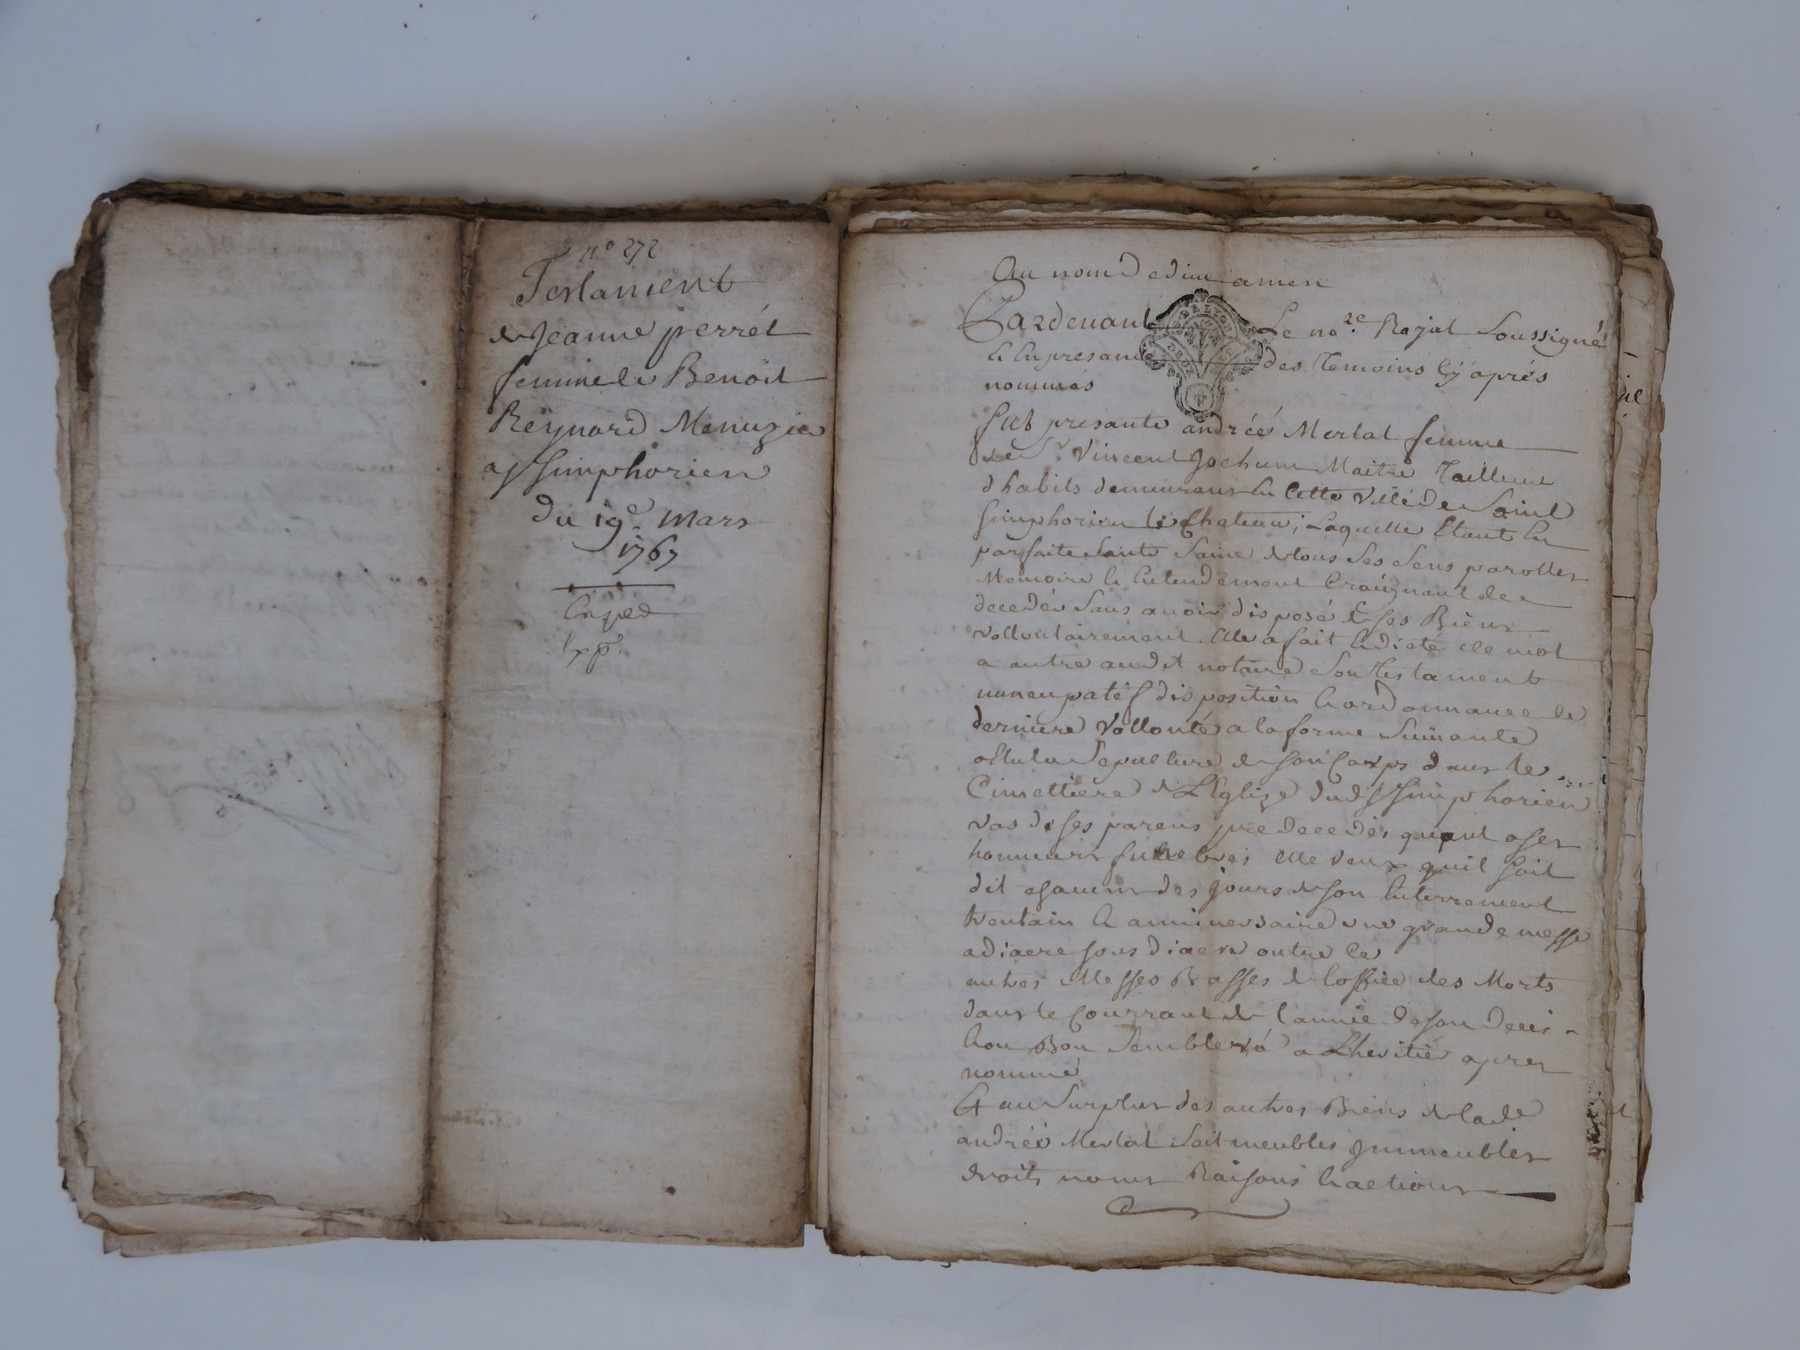 n° 272
Testament
de Jeanne perrét
femme de Benoit
Reynard Menuzier
a St Simphorien
du 19e. Mars
1767
Au nom de dieu amen
Pardenant Le nore. Royal Soussigné
& En presance des Temoins Cy aprés
nommés
fut presante andréé Merlat femme
de Sr. Vincent Jochum Maitre Tailleur
d habits demeurans En Cette Ville De Saint
Simphorien le Chateau, Laquelle Etant En
parfaite Santé Saine de tous Ses Sens parolles
Memoire & Entendement Craignant de
decedér Sans avoir disposé de Ses Biens
vollontairement Elle a fait & dicté de mot
a autre audit notaire Son Testament
nuncupatif disposition & ordonnance de
derniere Vollonté a la forme Suivante
a Elu la Sepulture de Son Corps dans le
Cimettiere de L'Eglize dud St Simphorien
vas de ses parens predecedés quant a ses
honneurs funebres Elle veux quil Soit
dit chacun des jours de Son Enterrement
trentain & anniversaire une grande messe
a diacre sous diacre outre Ce
autres Messes Basses de Loffice des Morts
dans le Courrant de l'année de son decés
Bon Semblera a Lheritier apres
nommé
Et au Surplus des autres Biens de lade
andréé Merlat Soit meubles Jmmeubles
droits noms Raisons & actions